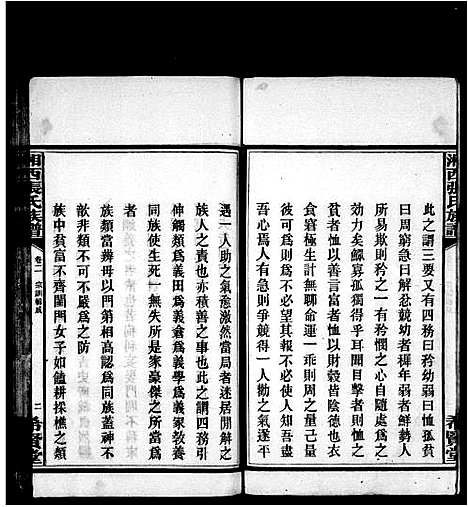 湘西張氏族譜
此之謂三要又有四務曰矜幼弱曰恤孤貧
曰周窘急曰解忿競幼者穉年弱者鮮勢人
所易欺則矜之一有矜憫之心自隨處為之
效力矣鰥寡孤獨得乎見聞目擊者則恤之
貧者恤以善言富者恤以財穀皆陰德也衣
食窘極生計無聊命運一乖則周之量己量
彼可為則為不必望其報不必使人知吾盡
吾心焉人有急則爭競得一人勸之氣遂平
遇一人助之氣愈激然當局者迷居間解之
族人之責也亦積善之事也此之謂四務引
伸觸類為義田為義倉為義學為義冢教養
同族使生死一無失所是家豪傑之所當為
族類當辨毋以門第相高認為同族蓋神不
歆非類不可不嚴為之防
族中貧富不齊閨門女子如饁耕採樵之類
湘西張氏族譜
卷二
宗訓輯成
二
希賢堂
希賢堂